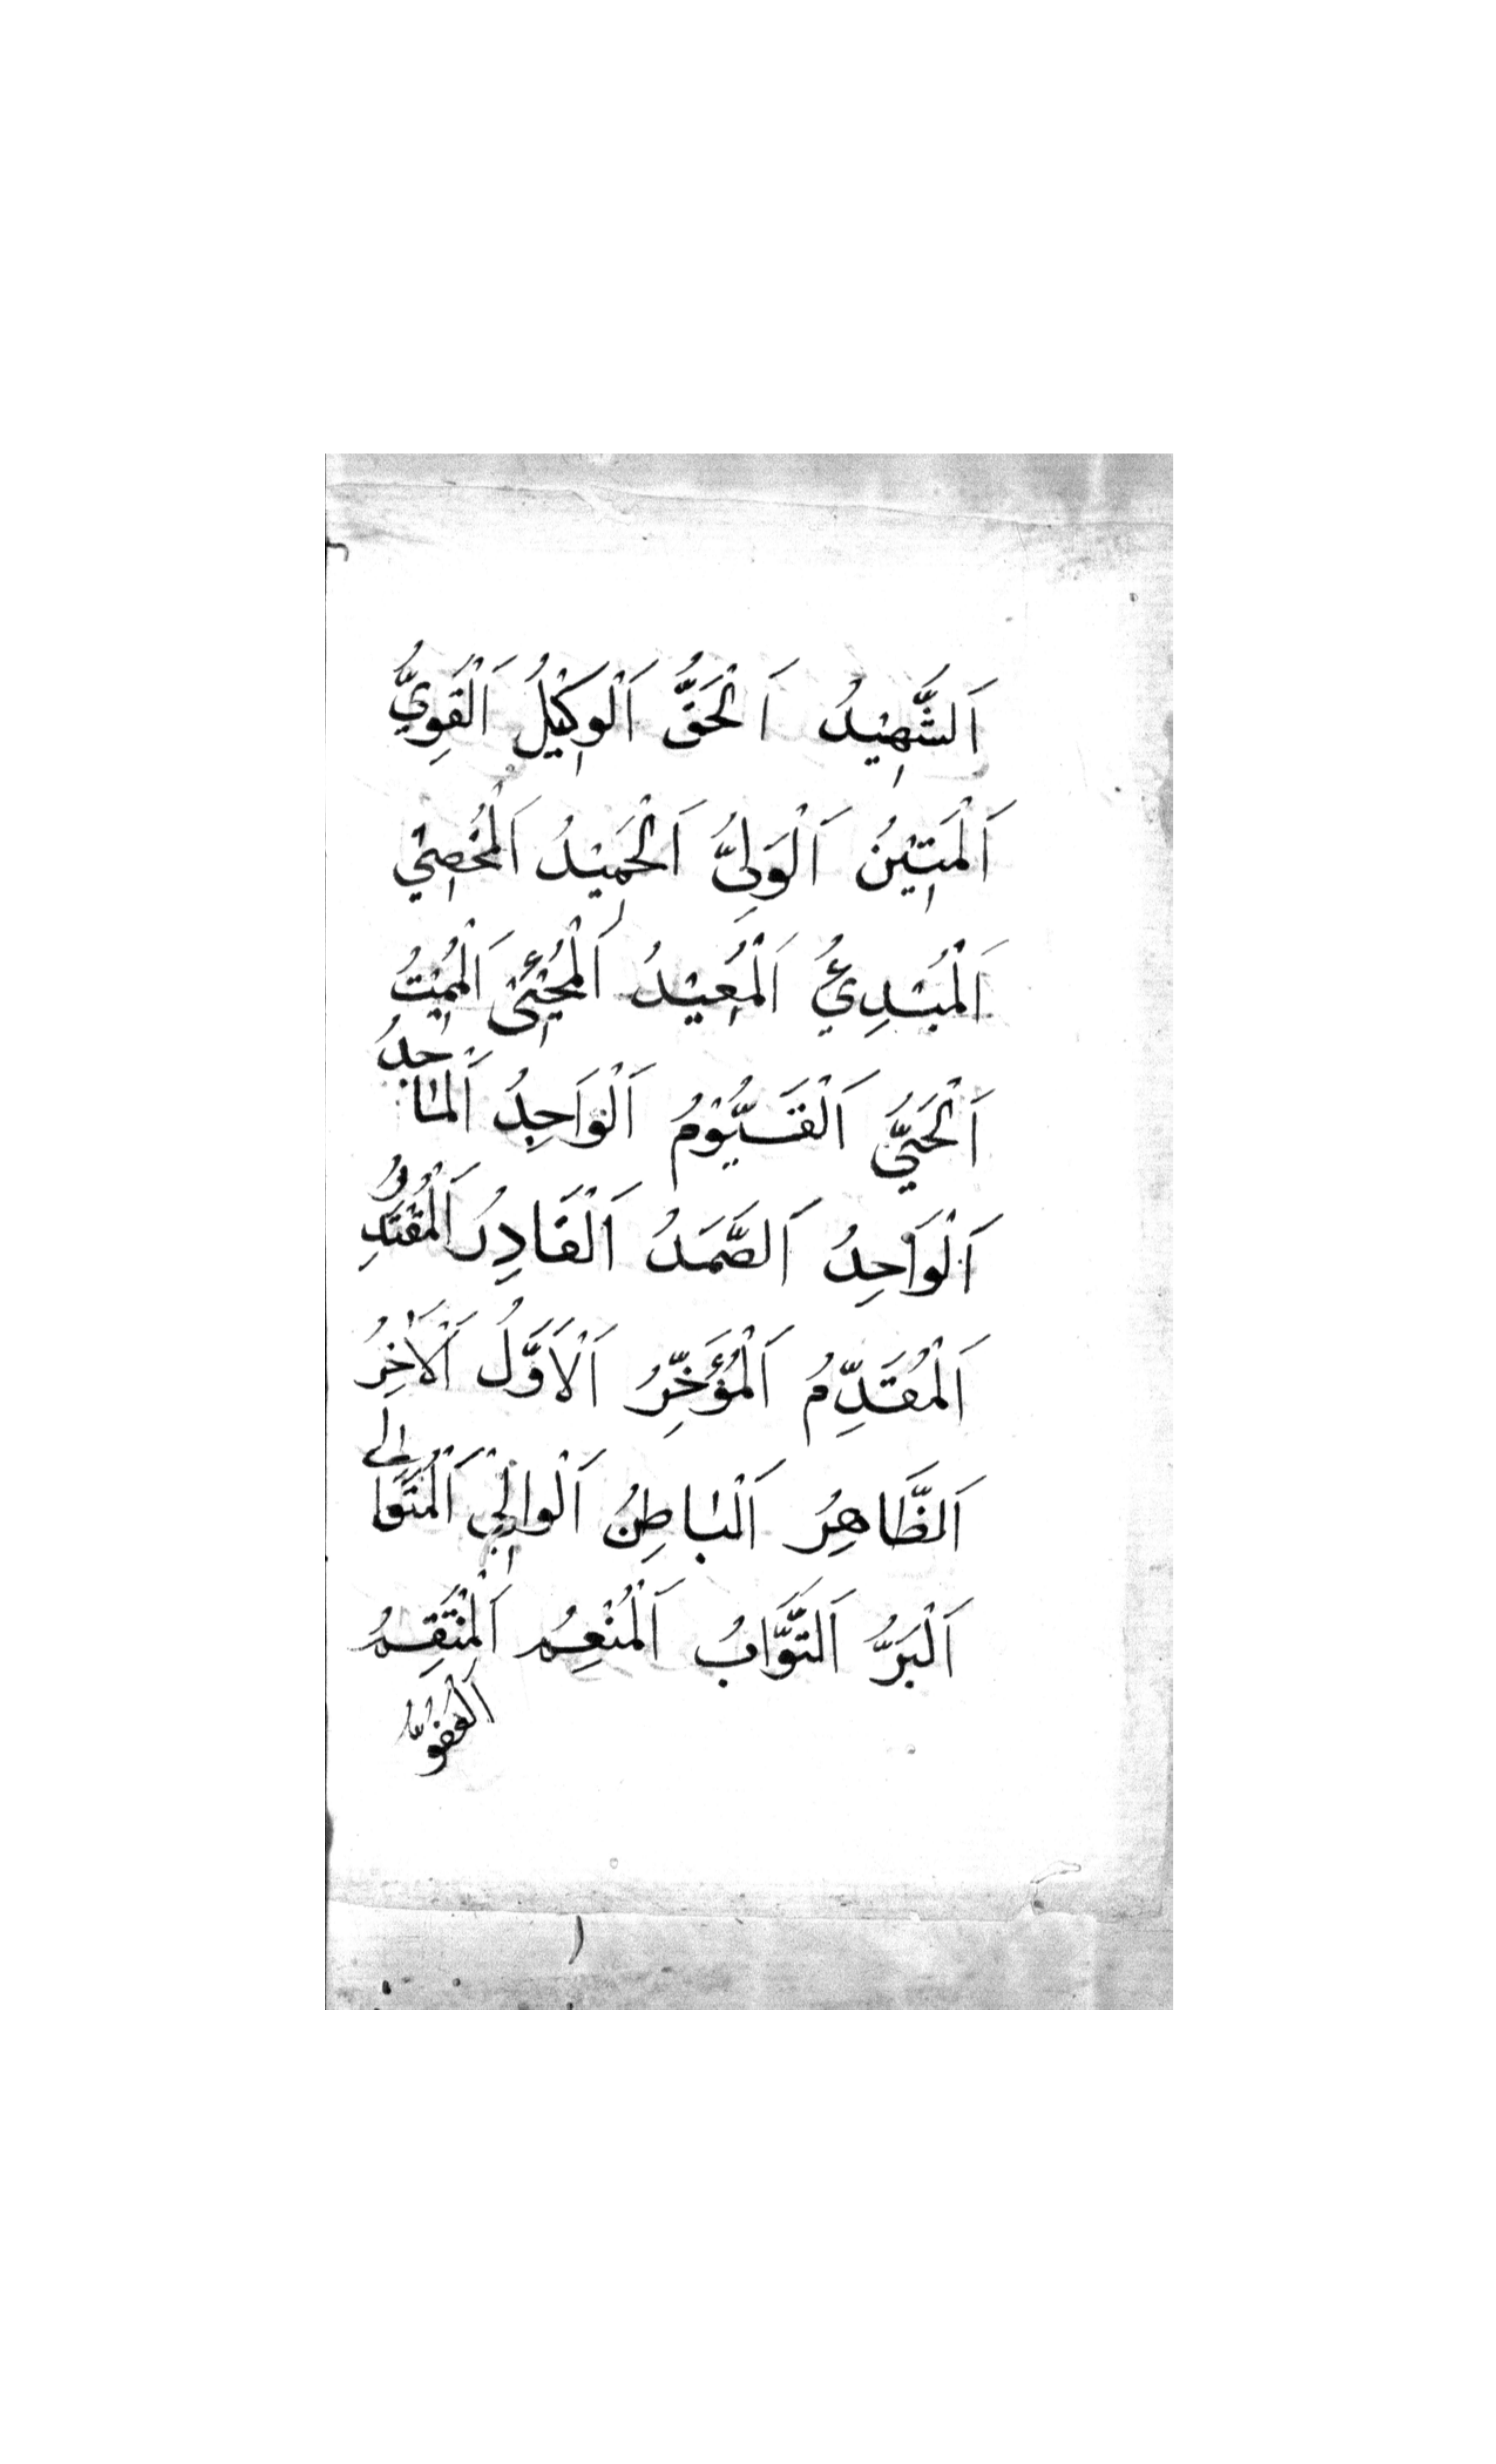 اَلشَّهِيْدُ اَلْحَقُّ اَلْوَكِيْلُ اَلْقَوِيُّ
اَلْمَتِيْنُ اَلْوَلِيُّ اَلْحَمِيْدُ اَلْمُحْصِيْ
اَلْمُبْدِئُ اَلْمُعِيْدُ اَلْمُحْيِئْ اَلْمُمِيْتُ
اَلْحَيُّ اَلْقَيُّوْمُ اَلْوَاجِدُ اَلْمَاجِدُ
اَلْوَاحِدُ اَلصَّمَدُ اَلْقَادِرُ اَلْمُقْتَدِرُ
اَلْمُقَدِّمُ اَلْمُؤَخِّرُ اَلْاَوَّلُ اَلْاٰخِرُ
اَلظَّاهِرُ اَلْبَاطِنُ اَلْوَالِيْ اَلْمُتَوَالِي
اَلْبَرُّ اَلتَّوَّابُ اَلْمُنْعِمُ اَلْمُنْتَقِمُ
اَلْعَفُوُّ